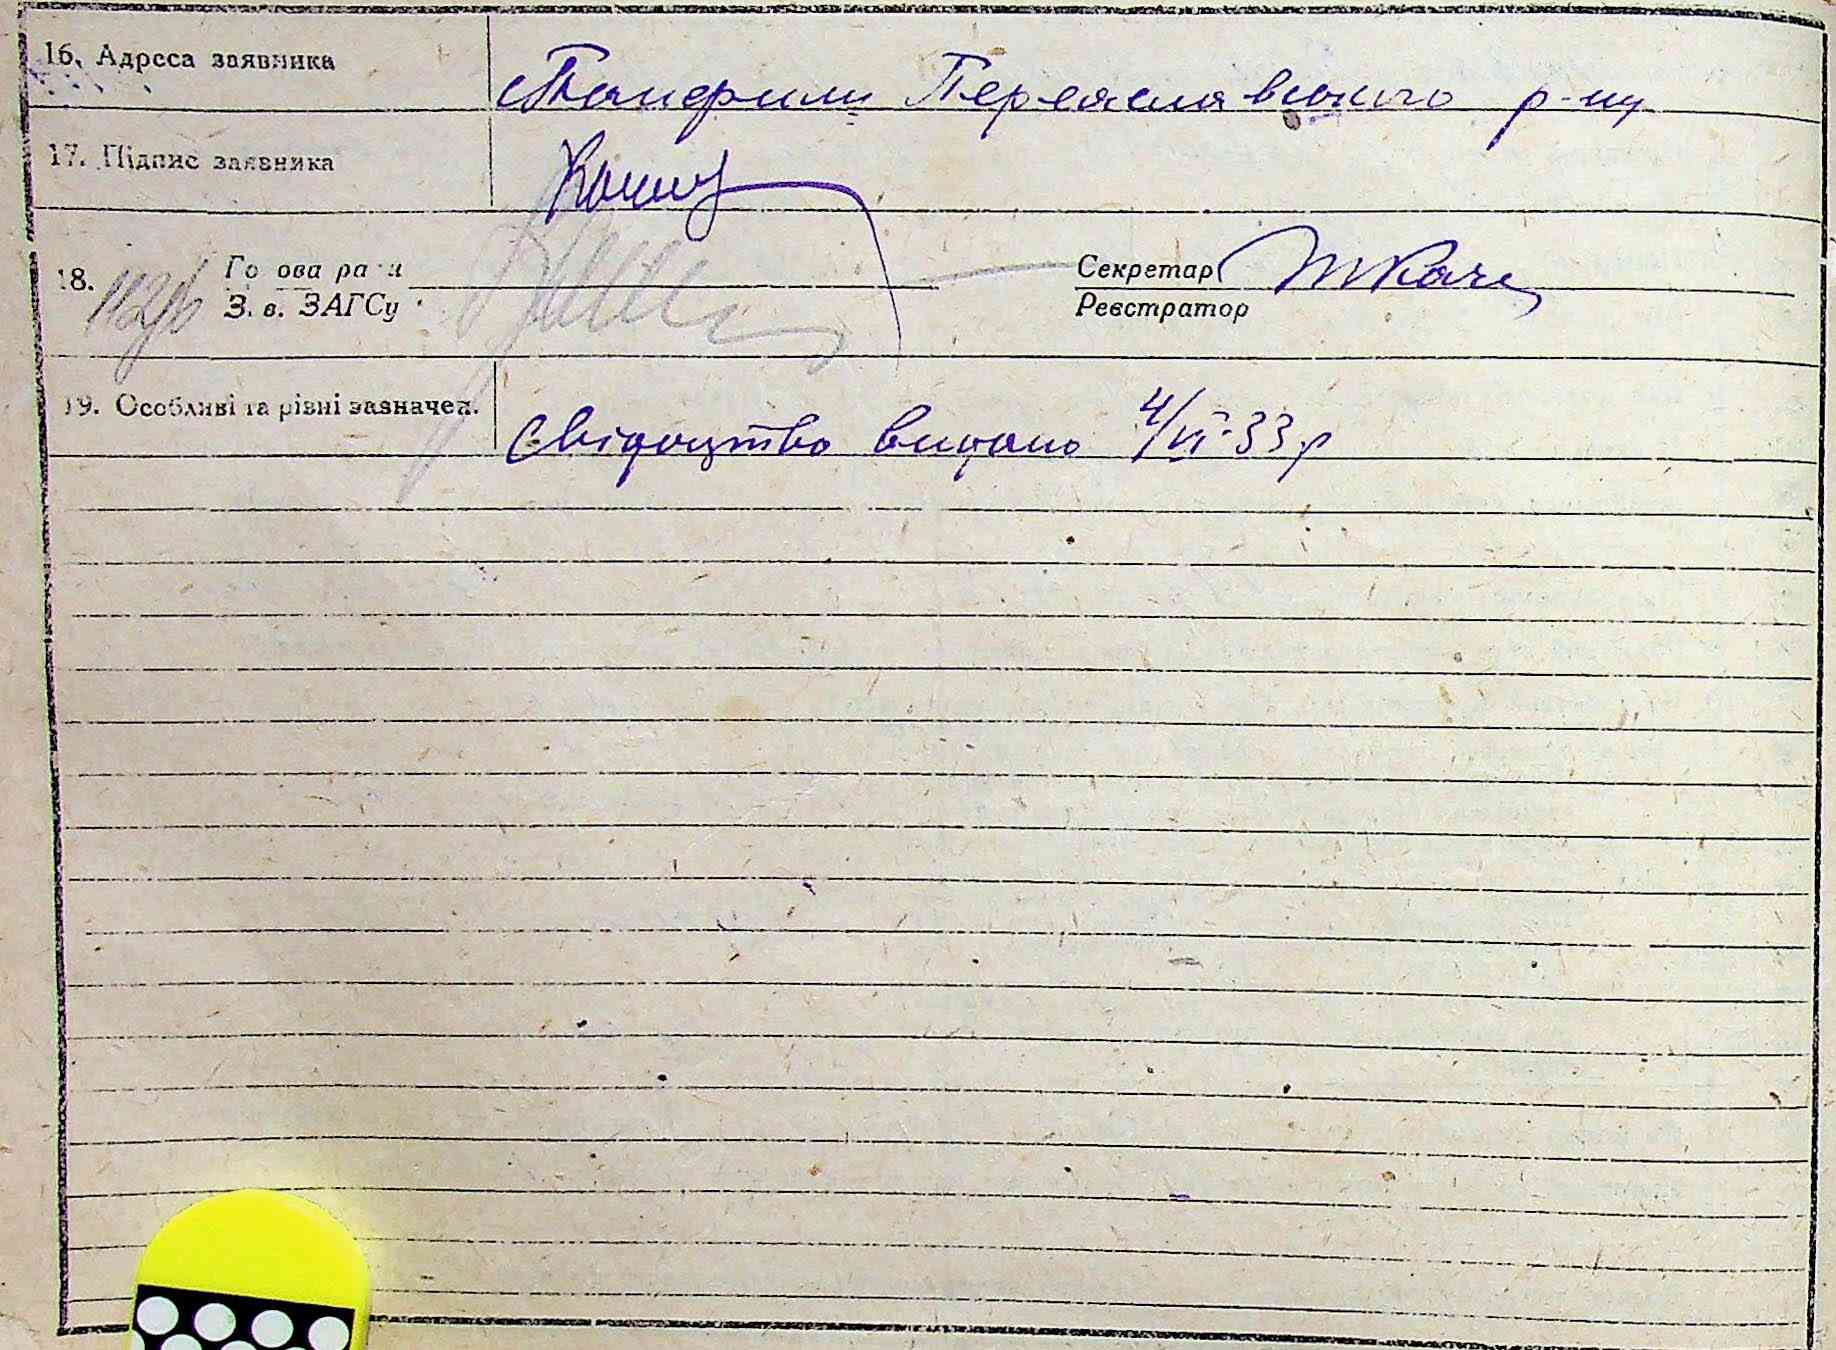 16. Адреса заявника с Панфили Переяславського р-ну
17. Підпис заявника
18. Голова ради Секретар Ткач
З. в. ЗАГСу Реєстратор
19. Особливі та різні зазначен. Свідоцтво видано 4/VI-33 р